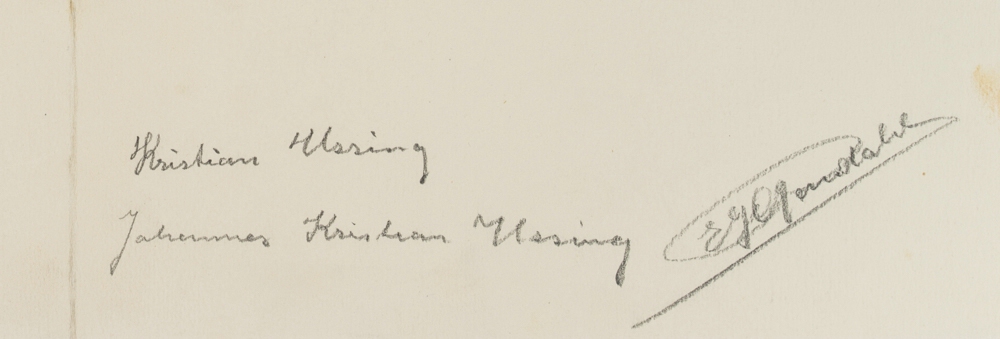 Kristian Ussing
Johannes Kristian Ussing